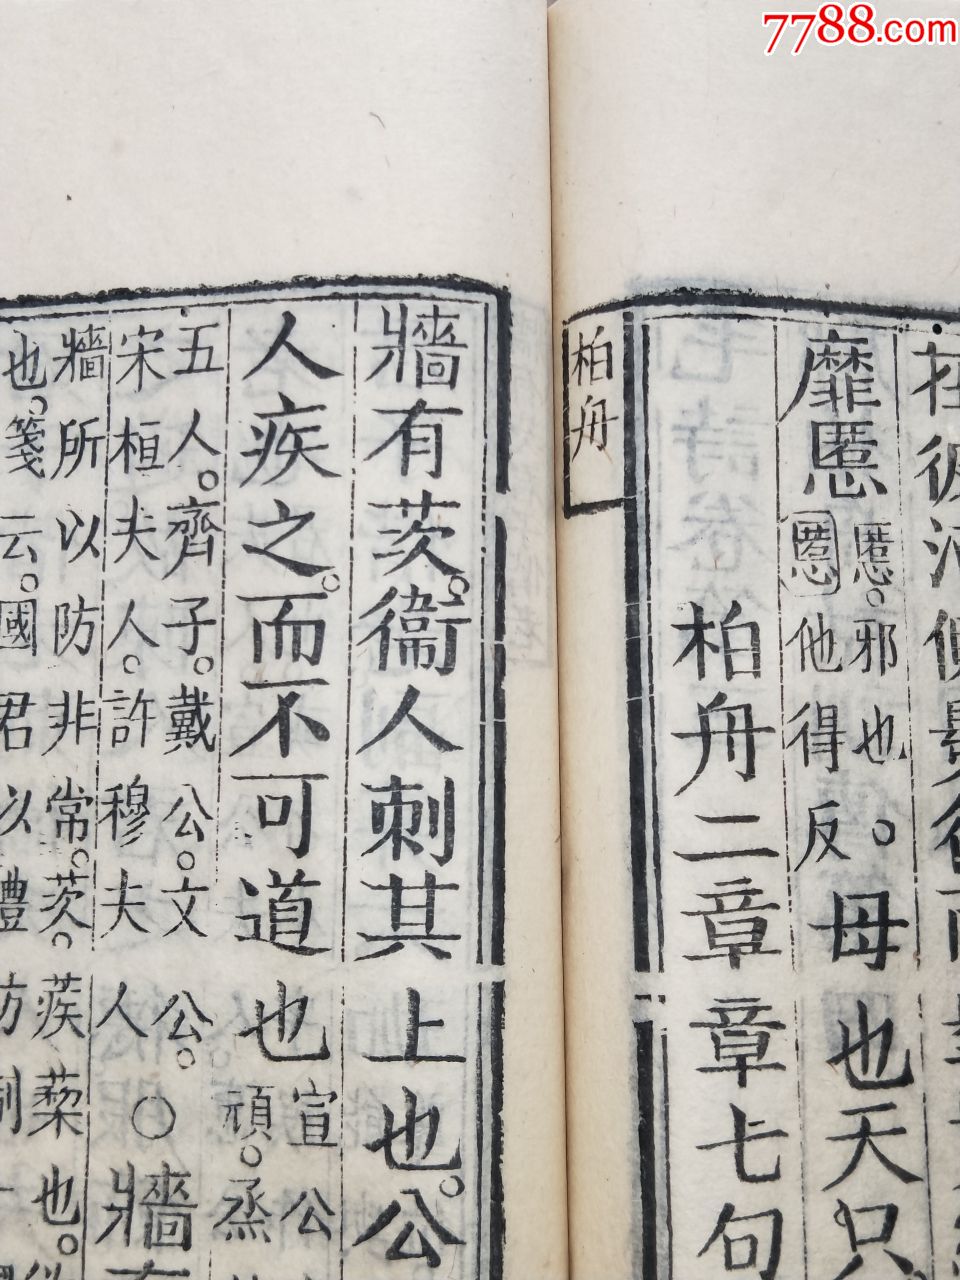 7788.com
在彼河側
靡慝
慝。邪也。
慝他得反
母也天只
柏舟二章章七句
柏舟
牆有茨。衞人刺其上也。公
人疾之。而不可道也
宣公
頑。烝
五人。齊子。戴公。文公。
宋桓夫人。許穆夫人○牆有
牆所以防非常。茨。蒺蔾也。
也。箋云。國君以禮防制